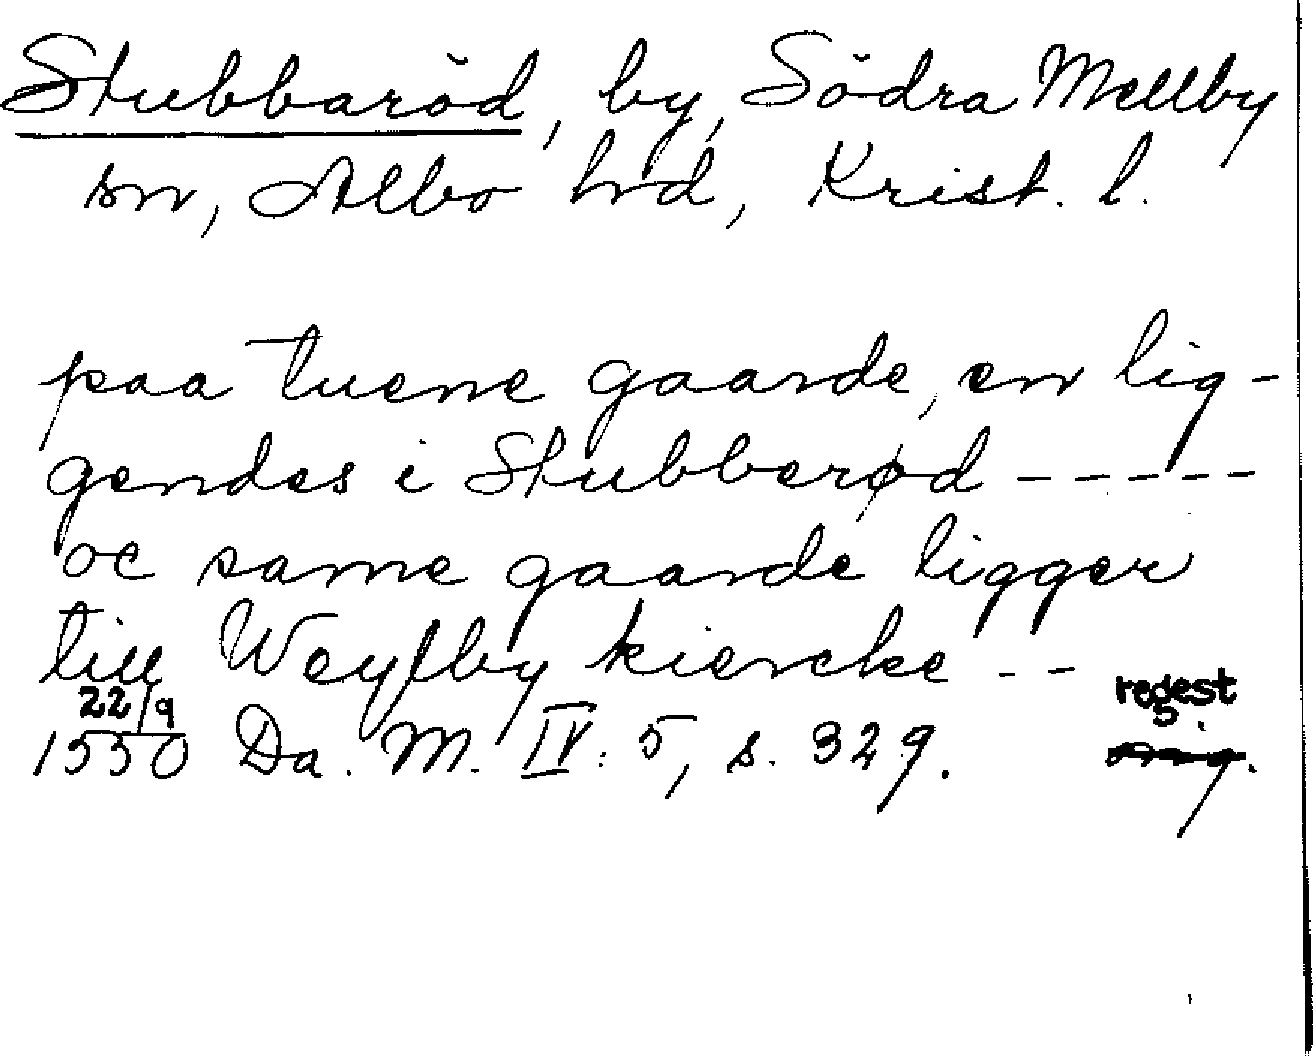 Stubbaröd, by, Södra Mellby
sn, Albo hrd, Krist. l.
paa tuene gaarde, en lig-
gendes i Stubberød -----
oc same gaarde ligger
till Weylby kiercke --
regest
22/9
1550 Da. M. IV: 5, s. 329. orig.